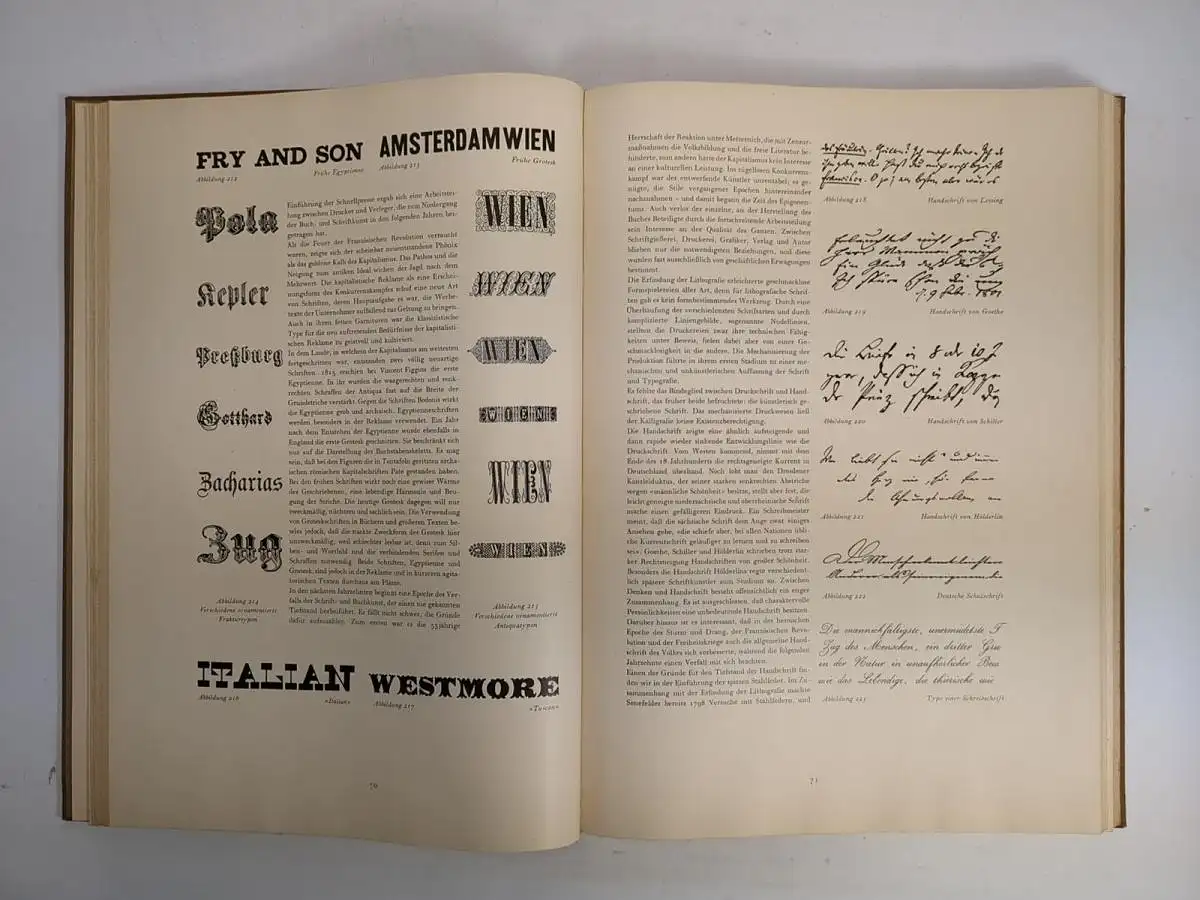 FRY AND SON
AMSTERDAM WIEN
Abbildung 212
Frühe Egyptienne
Abbildung 213
Frühe Grotesk
Pola
Kepler
Preßburg
Gotthard
Zacharias
Zug
Abbildung 214
Verschiedene ornamentierte
Frakturtypen
Einführung der Schnellpresse ergab sich eine Arbeitstei-
lung zwischen Drucker und Verleger, die zum Niedergang
der Buch- und Schriftkunst in den folgenden Jahren bei-
getragen hat.
Als die Feuer der Französischen Revolution verraucht
waren, zeigte sich der scheinbar neuentstandene Phönix
als das goldene Kalb des Kapitalismus. Das Pathos und die
Neigung zum antiken Ideal wichen der Jagd nach dem
Mehrwert. Die kapitalistische Reklame als eine Erschei-
nungsform des Konkurrenzkampfes schuf eine neue Art
von Schriften, deren Hauptaufgabe es war, die Werbe-
texte der Unternehmer auffallend zur Geltung zu bringen.
Auch in ihren fetten Garnituren war die klassizistische
Type für die neu auftretenden Bedürfnisse der kapitalisti-
schen Reklame zu geistvoll und kultiviert.
In dem Lande, in welchem der Kapitalismus am weitesten
fortgeschritten war, entstanden zwei völlig neuartige
Schriften. 1815 erschien bei Vincent Figgins die erste
Egyptienne. In ihr wurden die waagerechten und senk-
rechten Schraffen der Antiqua fast auf die Breite der
Grundstriche verstärkt. Gegen die Schriften Bodonis wirkt
die Egyptienne grob und archaisch. Egyptienneschriften
werden besonders in der Reklame verwendet. Ein Jahr
nach dem Entstehen der Egyptienne wurde ebenfalls in
England die erste Grotesk geschnitten. Sie beschränkt sich
nur auf die Darstellung des Buchstabenskeletts. Es mag
sein, daß bei den Figuren die in Tontafeln geritzten archa-
ischen römischen Kapitalschriften Pate gestanden haben.
Bei den frühen Schriften wirkt noch eine gewisse Wärme
des Geschriebenen, eine lebendige Harmonie und Beu-
gung der Striche. Die heutige Grotesk dagegen will nur
zweckmäßig, nüchtern und sachlich sein. Die Verwendung
von Groteskschriften in Büchern und größeren Texten be-
wies jedoch, daß die nackte Zweckform der Grotesk hier
unzweckmäßig, weil schlechter lesbar ist, denn zum Sil-
ben- und Wortbild sind die verbindenden Serifen und
Schraffen notwendig. Beide Schriften, Egyptienne und
Grotesk, sind jedoch in der Reklame und in kürzeren agita-
torischen Texten durchaus am Platze.
In den nächsten Jahrzehnten beginnt eine Epoche des Ver-
falls der Schrift- und Buchkunst, der einen nie gekannten
Tiefstand herbeiführt. Es fällt nicht schwer, die Gründe
dafür aufzuzählen. Zum ersten war es die 35jährige
WIEN
WIEN
WIEN
WIEN
WIEN
WIEN
Abbildung 215
Verschiedene ornamentierte
Antiquatypen
ITALIAN
WESTMORE
Abbildung 216
»Italian«
Abbildung 217
»Tuscan«
70
Herrschaft der Reaktion unter Metternich, die mit Zensur-
maßnahmen die Volksbildung und die freie Literatur be-
hinderte, zum andern hatte der Kapitalismus kein Interesse
an einer kulturellen Leistung. Im zügellosen Konkurrenz-
kampf war der entwerfende Künstler unrentabel; es ge-
nügte, die Stile vergangener Epochen hintereinander
nachzuahmen – und damit begann die Zeit des Epigonen-
tums. Auch verlor der einzelne, an der Herstellung des
Buches Beteiligte durch die fortschreitende Arbeitsteilung
sein Interesse an der Qualität des Ganzen. Zwischen
Schriftgießerei, Druckerei, Grafiker, Verlag und Autor
blieben nur die notwendigsten Beziehungen, und diese
wurden fast ausschließlich von geschäftlichen Erwägungen
bestimmt.
Die Erfindung der Lithografie erleichterte geschmacklose
Formspielereien aller Art, denn für lithografische Schrif-
ten gab es kein formbestimmendes Werkzeug. Durch eine
Überhäufung der verschiedensten Schriftarten und durch
komplizierte Liniengebilde, sogenannte Nudellinien,
stellten die Druckereien zwar ihre technischen Fähig-
keiten unter Beweis, fielen dabei aber von einer Ge-
schmacklosigkeit in die andere. Die Mechanisierung der
Produktion führte in ihrem ersten Stadium zu einer me-
chanischen und unkünstlerischen Auffassung der Schrift
und Typografie.
Es fehlte das Bindeglied zwischen Druckschrift und Hand-
schrift, das früher beide befruchtete: die künstlerisch ge-
schriebene Schrift. Das mechanisierte Druckwesen ließ
der Kalligrafie keine Existenzberechtigung.
Die Handschrift zeigte eine ähnlich aufsteigende und
dann rapide wieder sinkende Entwicklungslinie wie die
Druckschrift. Vom Westen kommend, nimmt mit dem
Ende des 18. Jahrhunderts die rechtsgeneigte Kurrent in
Deutschland überhand. Noch lobt man den Dresdener
Kanzleiduktus, der seiner starken senkrechten Abstriche
wegen »männliche Schönheit« besitze, stellt aber fest, die
leicht geneigte niedersächsische und oberrheinische Schrift
mache einen gefälligeren Eindruck. Ein Schreibmeister
meint, daß die sächsische Schrift dem Auge zwar einiges
Ansehen gebe, »die schiefe aber, bei allen Nationen übli-
che Kurrentschrift geläufiger zu lernen und zu schreiben
sei«. Goethe, Schiller und Hölderlin schrieben trotz star-
ker Rechtsneigung Handschriften von großer Schönheit.
Besonders die Handschrift Hölderlins regte verschiedent-
lich spätere Schriftkünstler zum Studium an. Zwischen
Denken und Handschrift besteht offensichtlich ein enger
Zusammenhang. Es ist ausgeschlossen, daß charaktervolle
Persönlichkeiten eine unbedeutende Handschrift besitzen.
Darüber hinaus ist es interessant, daß in der heroischen
Epoche des Sturm und Drang, der Französischen Revo-
lution und der Freiheitskriege auch die allgemeine Hand-
schrift des Volkes sich verbesserte, während die folgenden
Jahrzehnte einen Verfall mit sich brachten.
Einen der Gründe für den Tiefstand der Handschrift fin-
den wir in der Einführung der spitzen Stahlfeder. Im Zu-
sammenhang mit der Erfindung der Lithografie machte
Senefelder bereits 1798 Versuche mit Stahlfedern, und
Abbildung 218
Handschrift von Lessing
Abbildung 219
Handschrift von Goethe
Abbildung 220
Handschrift von Schiller
Abbildung 221
Handschrift von Hölderlin
Abbildung 222
Deutsche Schulschrift
Die mannichfaltigste, unermüdetste T
Zug des Menschen, ein dritter Gru
in der Natur in unaufhörlicher Bew
wie das Lebendige, die thierische wie
Abbildung 223
Type einer Schreibschrift
71